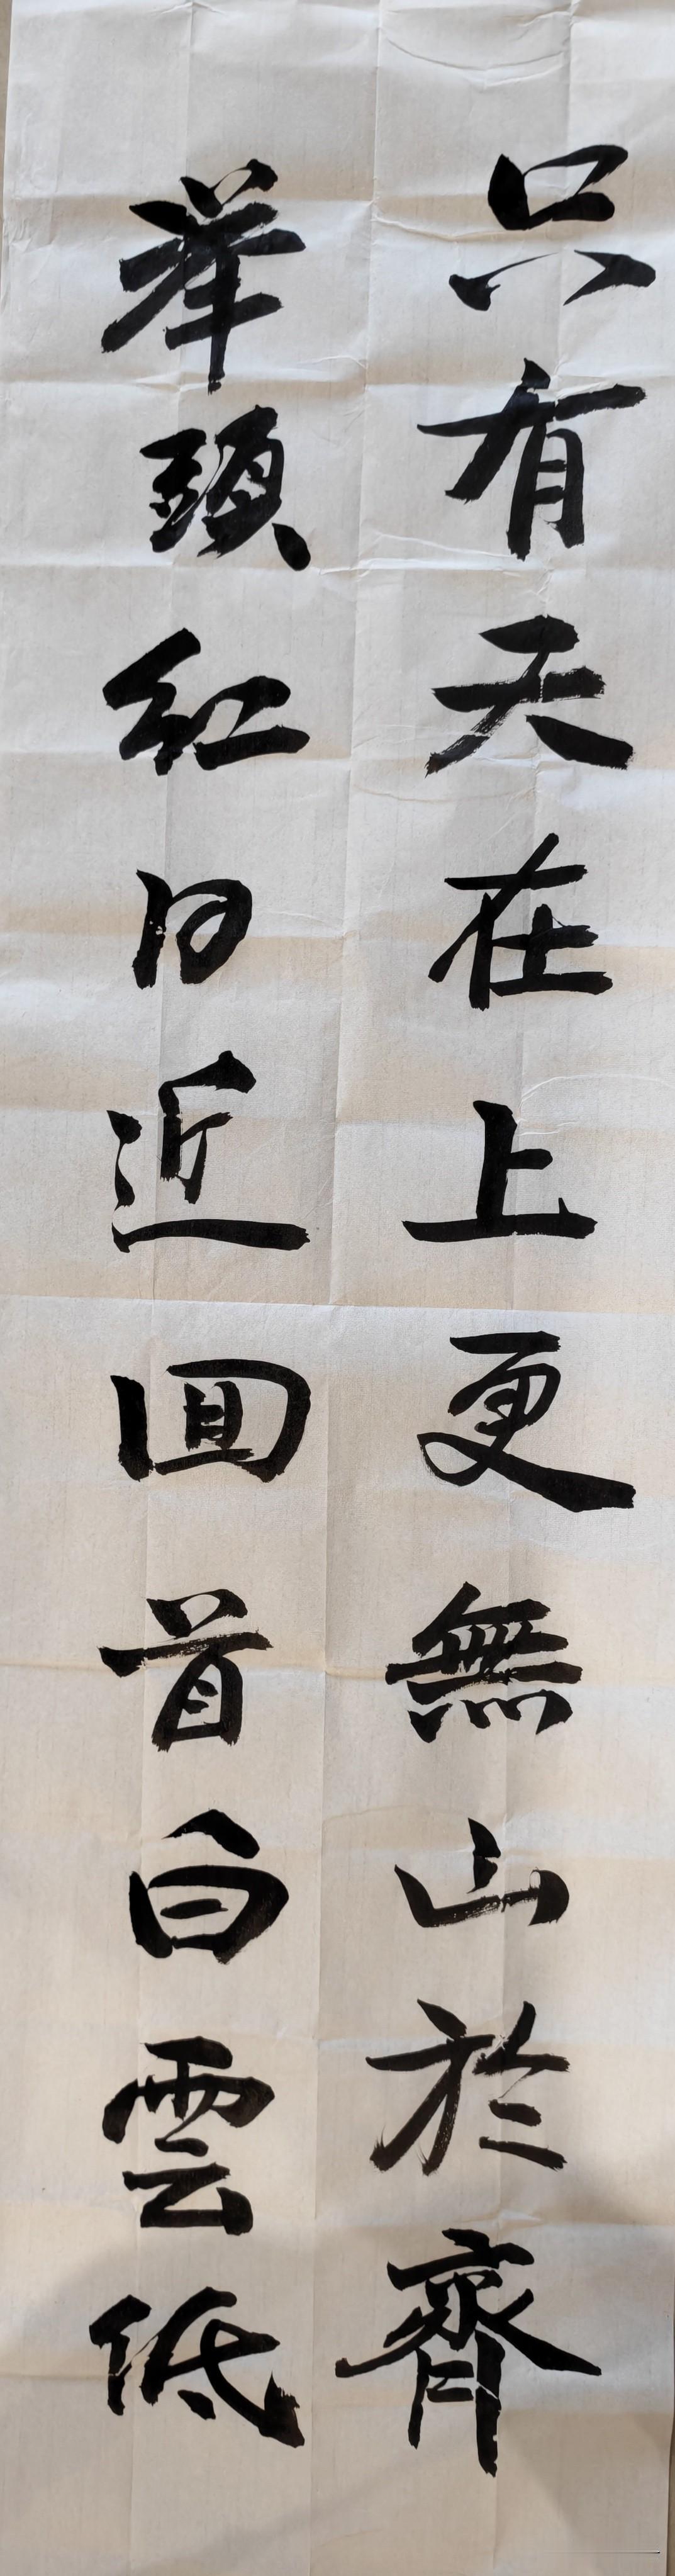 只有天在上更無山於齊
举頭紅日近回首白雲低